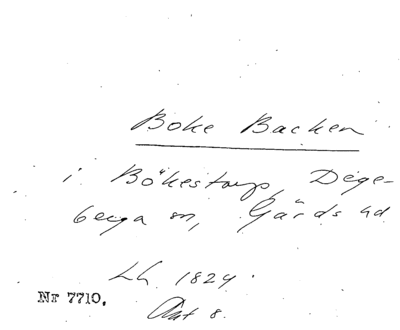 Boke Backen
i Bökestorp, Dege-
berga sn, Gärds hd
Lh. 1824.
Nr 7710.
Akt 8.